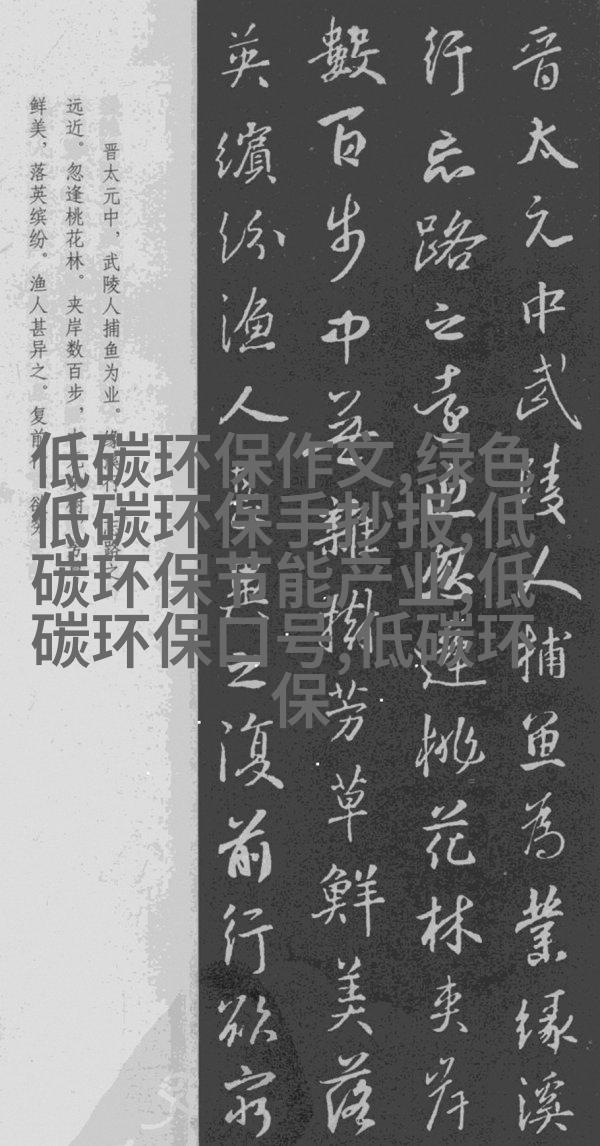 晋太元中武陵人捕魚為業緣溪
行忘路之遠近忽逢桃花林夾岸
數百步中無雜樹芳草鮮美落
英繽紛漁人甚異之復前行欲窮
晋太元中，武陵人捕鱼为业。缘溪行，忘路之
远近。忽逢桃花林。夹岸数百步，
鲜美，落英缤纷。渔人甚异之。复前行，欲穷
低碳环保作文,绿色
低碳环保手抄报,低
碳环保节能产业,低
碳环保口号,低碳环
保